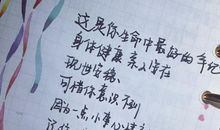 这是你生命中最好的年纪
身体健康 亲人皆在
现世安稳
可惜你意识不到
因为一点小事